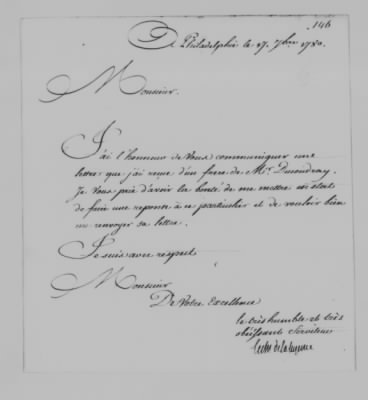 146
A Philadelphie le 27. 7bre 1780.
Monsieur.
J'ai l'honneur de Vous communiquer une
lettre que j'ai reçue d'un frere de Mr. Ducoudray.
Je Vous prie d'avoir la bonté de me mettre en état
de faire une reponse à ce particulier et de vouloir bien
me renvoyer sa lettre.
Je suis avec respect
Monsieur
De Votre Excellence
le très humble et très
obéissant Serviteur
le chr de la luzerne